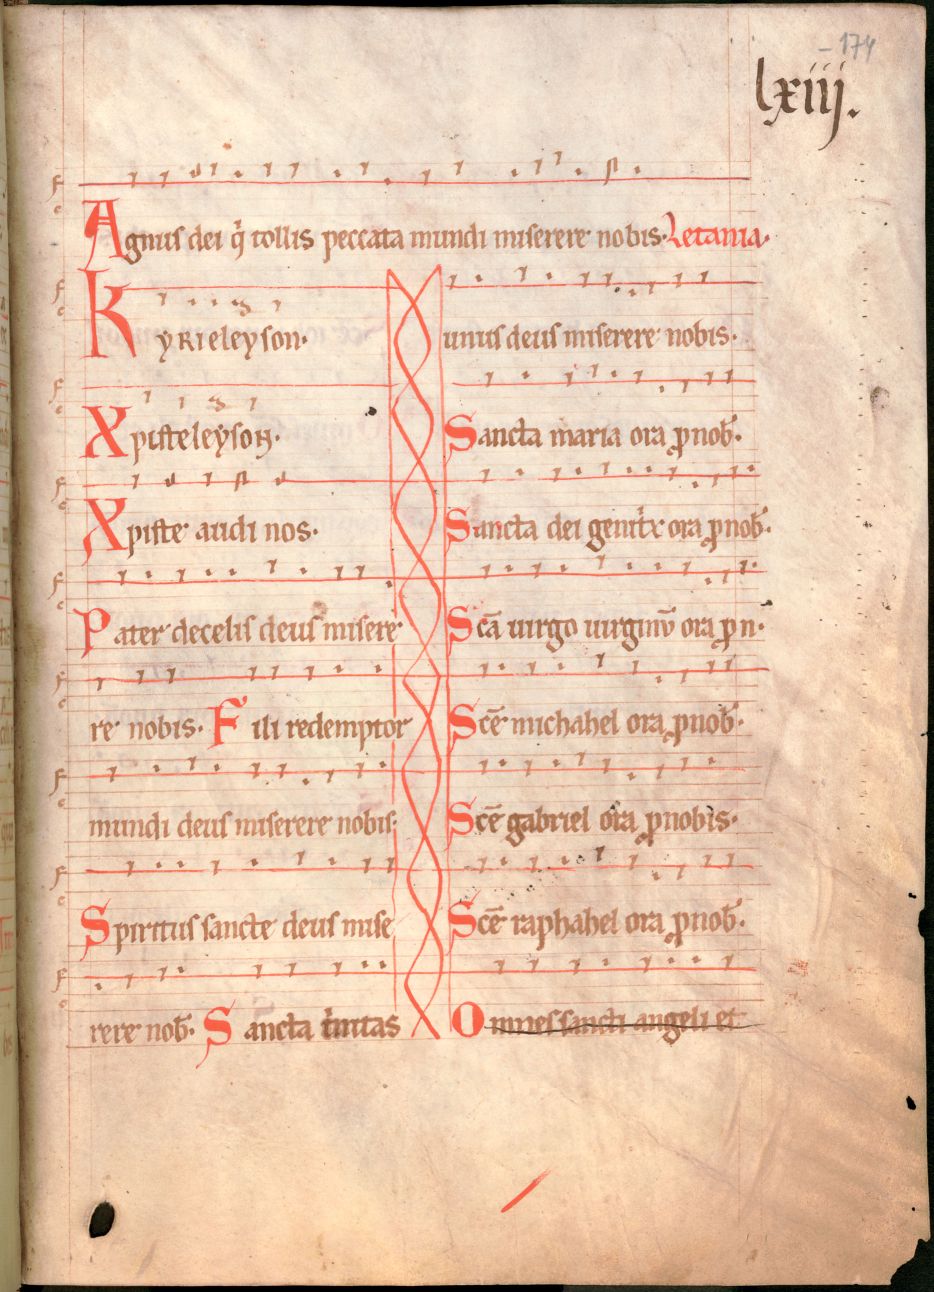 - 174
lxiij.
Agnus dei q̄ tollis peccata mundi miserere nobis. Letania.
Kyrieleyson.
Xpisteleyson.
Xpiste audi nos.
Pater de celis deus misere
re nobis. Fili redemptor
mundi deus miserere nobis.
Spiritus sancte deus mise
rere nob̄. Sancta t̄nitas
unus deus miserere nobis.
Sancta maria ora p̱ nob̄.
Sancta dei genit̄x ora p̱ nob̄.
Sc̄a uirgo uirginū ora p̱ n.
Sc̄e michahel ora p̱ nob̄.
Sc̄e gabriel ora p̱ nobis.
Sc̄e raphahel ora p̱ nob̄.
Omnes sancti angeli et